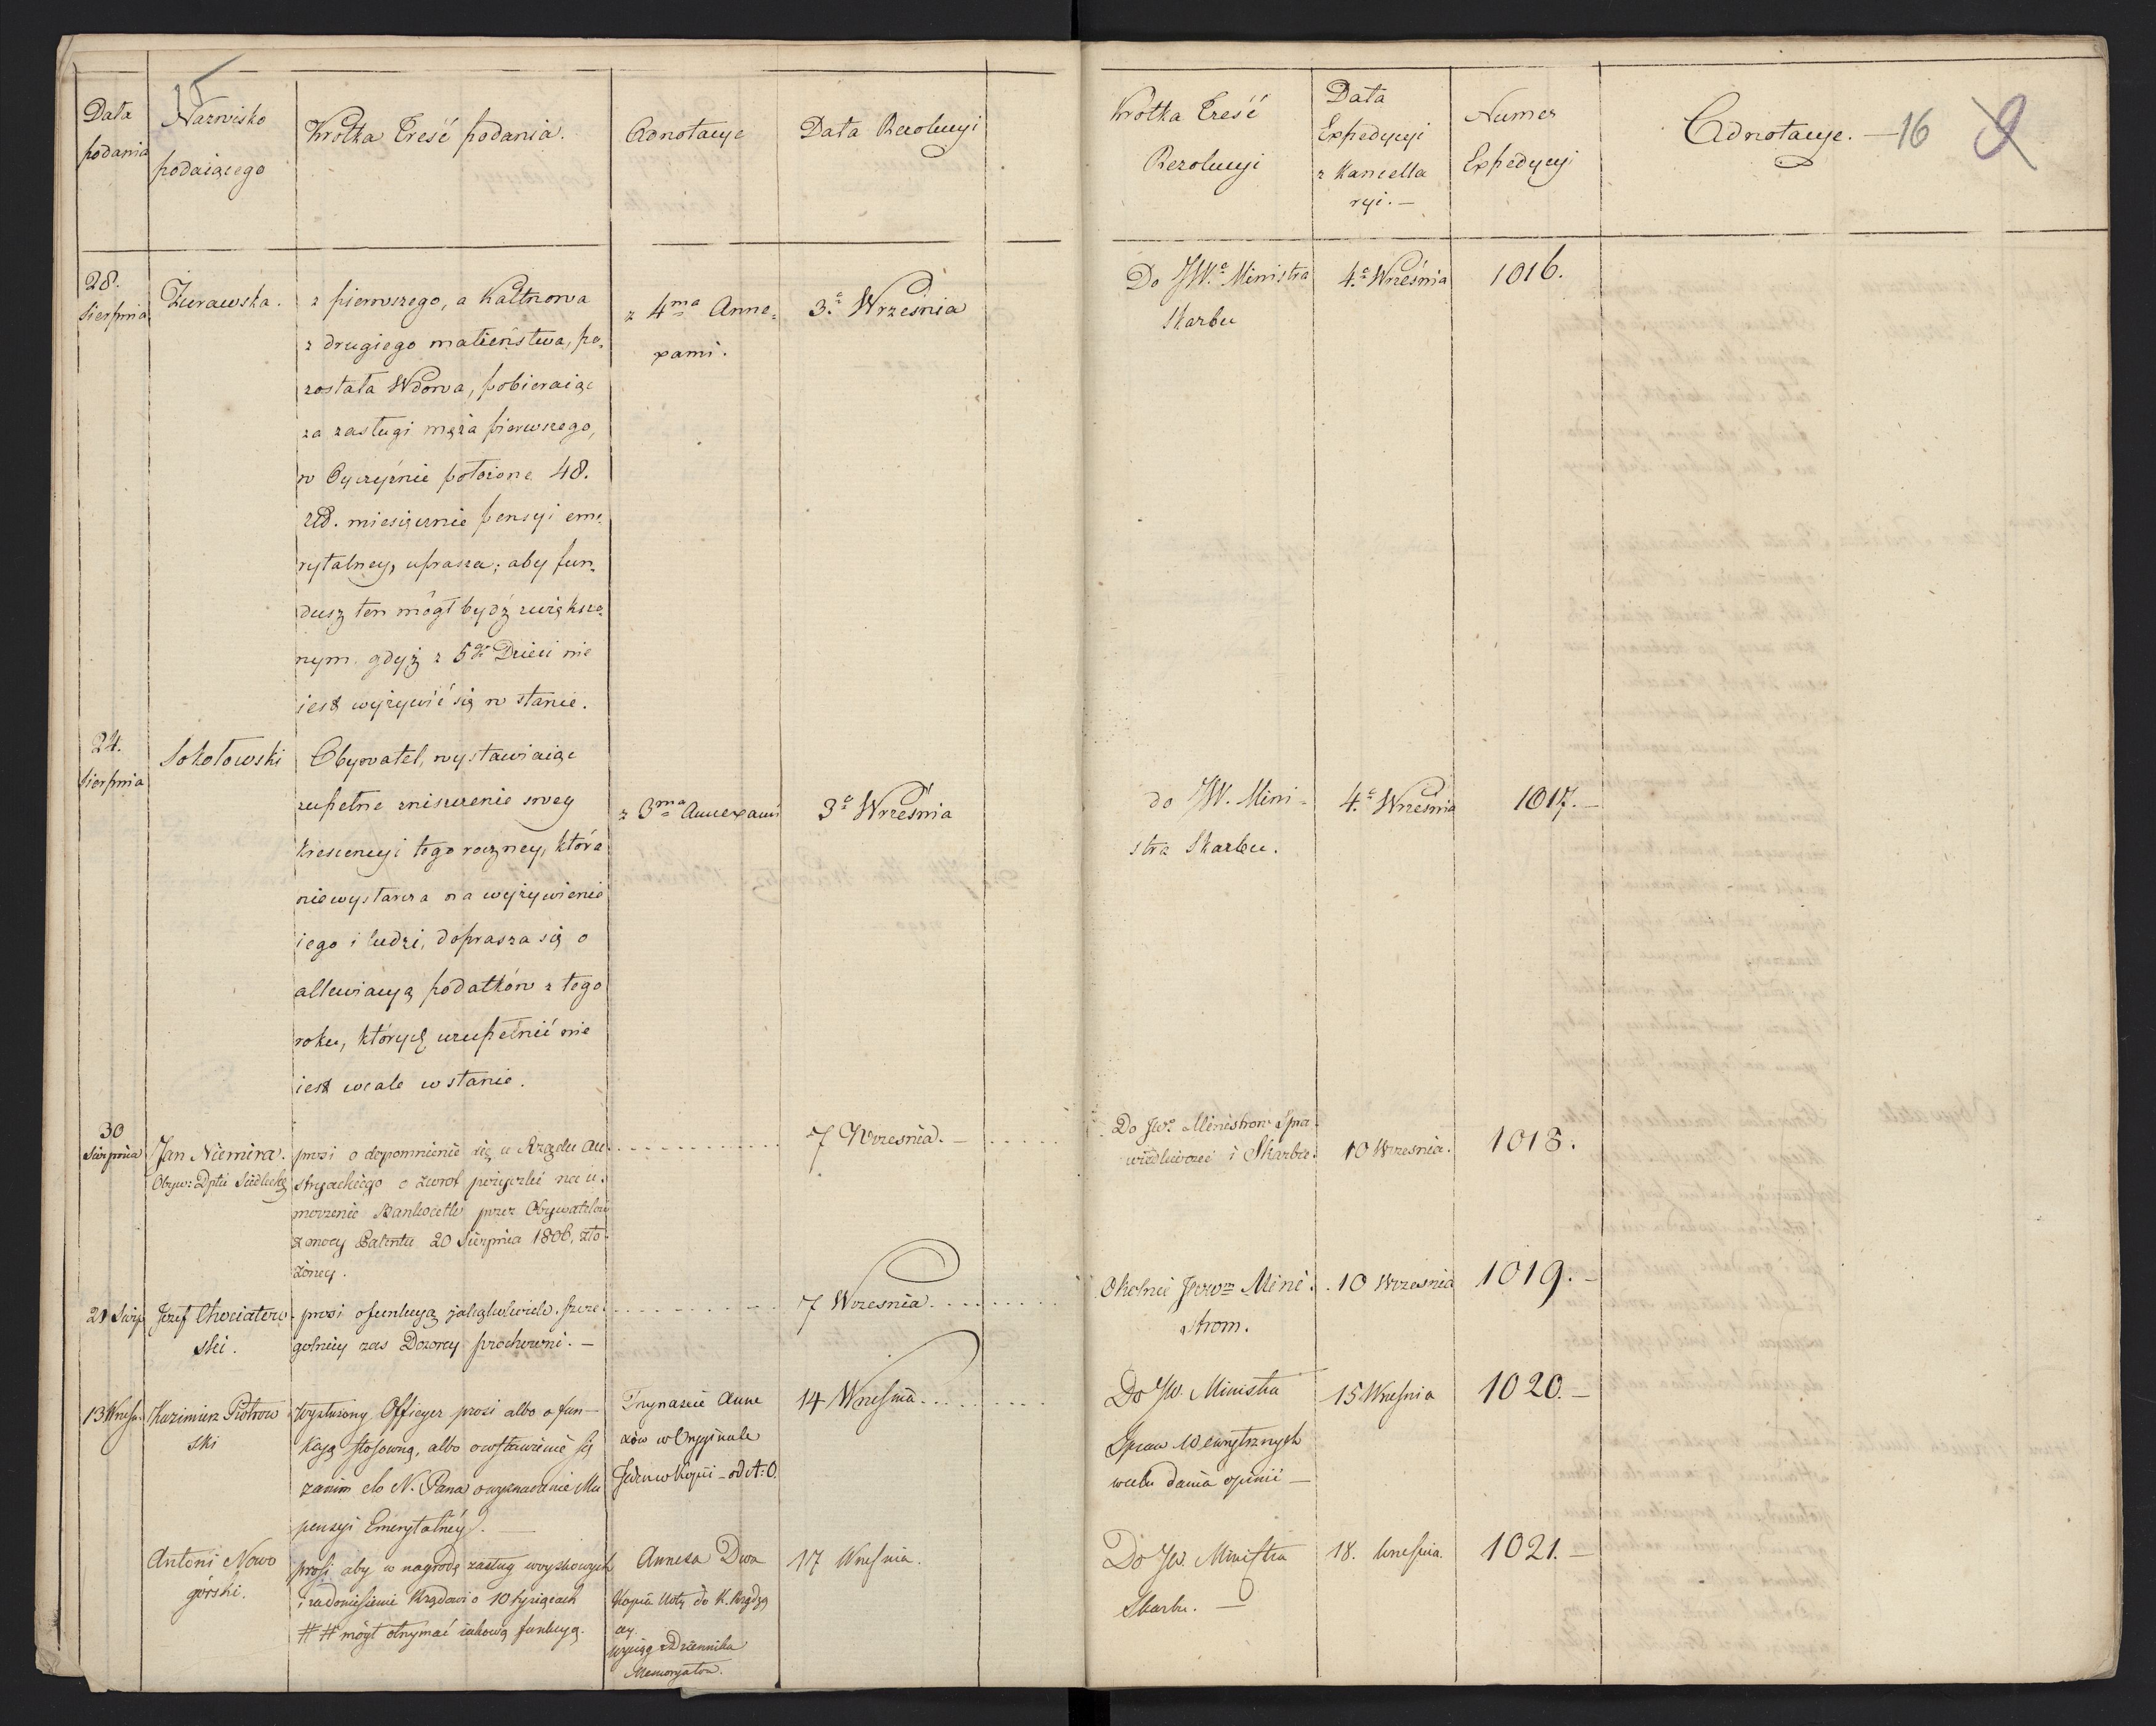 15
Data
podania
Nazwisko
podaiącego
Krotka Treść podania.
Adnotacye
Data Rezolucyi
Krotka Treść
Rezolucyi
Data
Expedycyi
z Kancella
ryi. —
Numer
Expedycyi
Adnotacye. — 16
28.
Sierpnia
Żurawska.
z pierwszego, a
z drugiego małżeństwa, po„
została Wdowa, pobieraiąc
za zasługi męża pierwszego,
w Oyczyznie położone 48.
złł. miesięcznie pensyi eme„
rytalney, uprasza; aby fun„
dusz ten mógł bydź zwiększo„
nym. gdyż z 5gi Dzieci nie
iest wyżywić się w stanie.
z 4ma Anne„
xami.
3.a Września
Do JWo Ministra
Skarbu
4.a Września
1016.
24.
Sierpnia
Sokołowski
Obywatel, wystawiaiąc
zupełne zniszczenie swey
krescencyi tegorączney, która
niewystarcza na wyżywienie
iego i ludzi, doprasza się o
allewiacyą podatków z tego
roku, których uzupełnić nie
iest wcale w stanie.
z 3ma Annexami
3a Września
do JW. Mini-
stra Skarbu.
4.a Września
1017. —
30
Sierpnia
Jan Niemira.
Obyw: Dptu Siedleckg
prosi o dopomnienie się u Rządu Au-
stryackiego o zwrot pożyczki na u-
morzenie Bankocetli przez Obywatelow
z mocy Patentu 20 Sierpnia 1806, zło-
żoney.
7 Wrzesnia. —
Do Jwo Ministrow Spra-
wiedliwosci i Skarbu.
10 Wrzesnia.
1018.
21 Sierp
Jozef Chociatow-
ski.
prosi o funkcyą jakąkolwiek. szcze-
golniey zas Dozorcy prochowni. —
7 Wrzesnia.
Okolnie Jwwm Mini-
strom.
10 Wrzesnia
1019. —
13 Wrzesn.
Kazimierz Piotrow
ski
Wysłużony Officyer prosi albo o fun—
kcyą stosowną, albo o wstawienie się
zanim do N. Pana o wyznaczenie Mu
pensyi Emerytalney. —
Trzynascie Anne
xów w Oryginale
Jeden w Kopii — od A: O.
14 Wrzesnia.
Do JW. Ministra
Spraw Wewnętrznych
wcelu dania opinii —
15 Wrzesnia
1020. —
Antoni Nowo
górski.
prosi aby w nagrodę zasług woyskowych
i zadoniesienie Rządowi o 10 tysiącach
# # mógł otrzymać iakową funkcyą.
Annexa Dwa
Kopia Noty do K. Rządzą
cey.
Wyciąg z Dziennika
Memoryałow.
17 Wrzesnia.
Do JW. Ministra
Skarbu. —
18. Wrzesnia.
1021. —